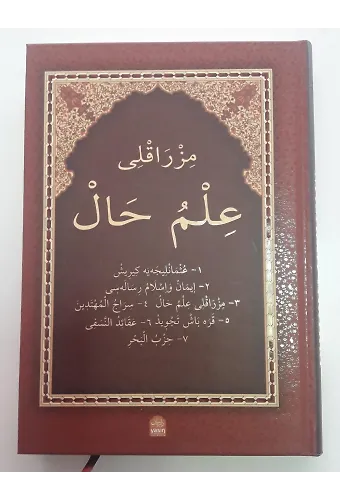 مِزْرَاقْلِى
عِلْمُ حَالْ
١- عُثْمَانْلِيجَه يَه كِيرِيشْ
٢- اِيمَانْ وَاِسْلَامْ رِسَالَه سِى
٣- مِزْرَاقْلِى عِلْمُ حَالْ ٤- سِرَاجُ الْمُهْتَدِينَ
٥- قَرَه بَاشْ تَجْوِيدْ ٦- عَقَائِدُ النَّسَفِى
٧- حِزْبُ الْبَحْر